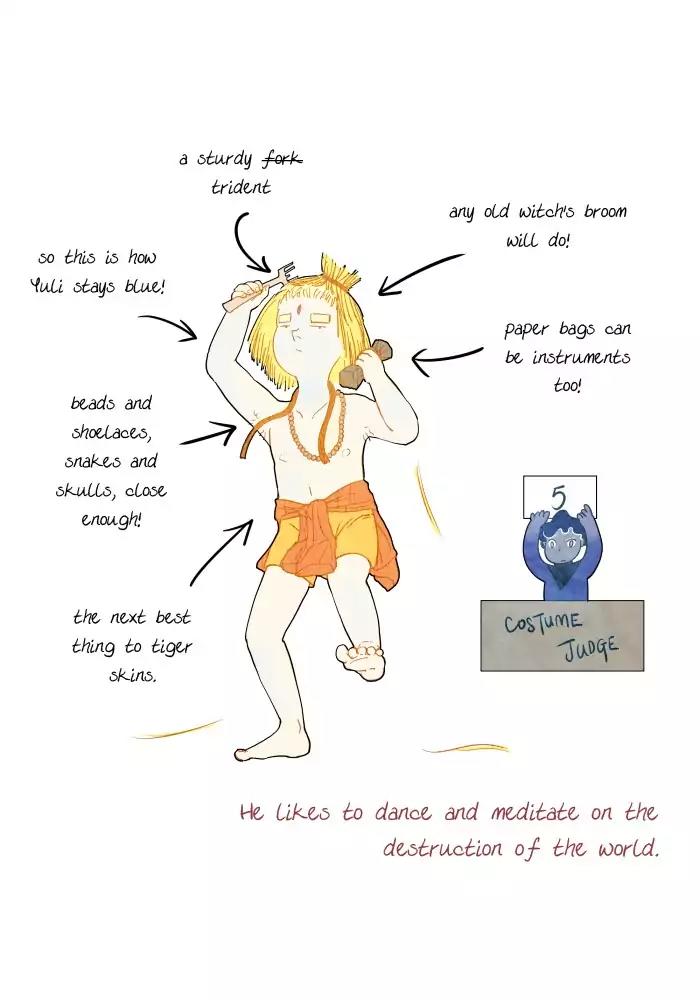 a sturdy fork
trident
any old witch's broom
will do!
so this is how
Yuli stays blue!
paper bags can
be instruments
too!
beads and
shoelaces,
snakes and
skulls, close
enough!
5
COSTUME
JUDGE
the next best
thing to tiger
skins.
He likes to dance and meditate on the
destruction of the world.